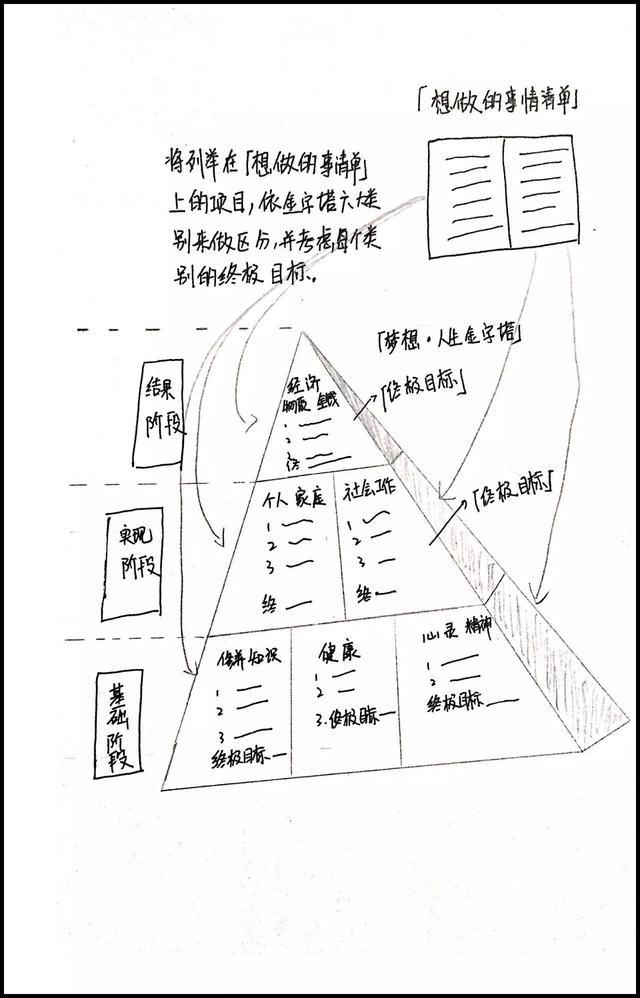 「想做的事情清单」
将列举在「想做的事清单」
上的项目，依金字塔六大类
别来做区分，并考虑每个类
别的终极目标。
「梦想·人生金字塔」
「终极目标」
结果
阶段
经济
物质 金钱
1
2
3
终
「终极目标」
实现
阶段
个人 家庭
1
2
3
终
社会工作
1
2
3
终
基础阶段
修养知识
1
2
3
终极目标
健康
1
2
3.终极目标
心灵 精神
1
2
终极目标